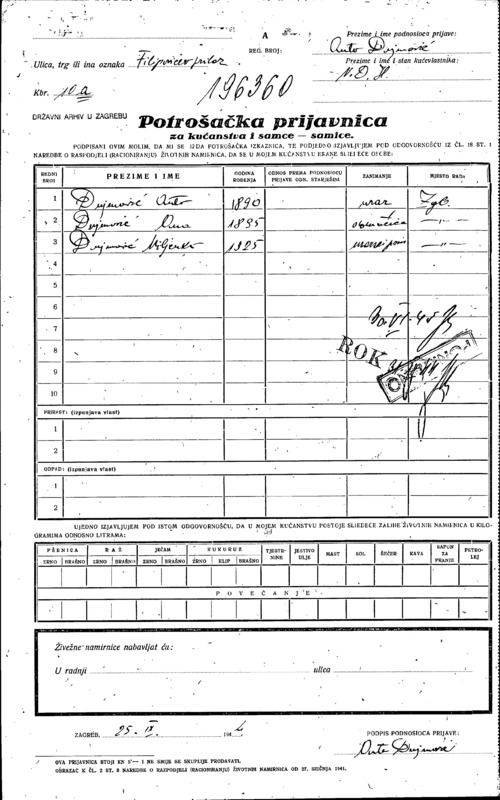 A
REG. BROJ:
Prezime i ime podnosioca prijave:
Anto Dujmović
Ulica, trg ili ina oznaka Filipovićev prilaz
Prezime i ime i stan kućevlastnika:
N. D. H.
Kbr. 10a
196360
DRŽAVNI ARHIV U ZAGREBU
Potrošačka prijavnica
za kućanstva i samce — samice.
POTPISANI OVIM MOLIM, DA MI SE IZDA POTROŠAČKA IZKAZNICA, TE PODJEDNO IZJAVLJUJEM POD ODGOVORNOŠĆU IZ ČL. 18 ST. 1
NAREDBE O RASPODJELI (RACIONIRANJU) ŽIVOTNIH NAMIRNICA, DA SE U MOJEM KUĆANSTVU HRANE SLIJEDEĆE OSOBE:
REDNI BROJ PREZIME I IME GODINA ROĐENJA ODNOS PREMA PODNOSIOCU PRIJAVE ODN. STARJEŠINI ZANIMANJE MJESTO RADA
1 Dujmović Anto 1890 urar Zgb.
2 Dujmović Ana 1895 —„—
3 Dujmović Miljenko 1925 —„—
4
5
6
7
30. VI. 45
8 ROK
9
10
PRIRAST: (izpunjava vlast)
1
2
ODPAD: (izpunjava vlast)
1
2
UJEDNO IZJAVLJUJEM POD ISTOM ODGOVORNOŠĆU, DA U MOJEM KUĆANSTVU POSTOJE SLIJEDEĆE ZALIHE ŽIVOTNIH NAMIRNICA U KILO-
GRAMIMA ODNOSNO LITRAMA:
PŠENICA RAŽ JEČAM KUKURUZ TJESTE-NINE JESTIVO ULJE MAST SOL ŠEĆER KAVA SAPUN ZA PRANJE PETRO-LEJ
ZRNO BRAŠNO ZRNO BRAŠNO ZRNO BRAŠNO ZRNO KLIP BRAŠNO
POVEĆANJE
Živežne namirnice nabavljat ću:
U radnji ulica
ZAGREB, 25. IX. 194
POTPIS PODNOSIOCA PRIJAVE:
Anto Dujmović
OVA PRIJAVNICA STOJI KN 5·— I NE SMIJE SE SKUPLJE PRODAVATI.
OBRAZAC K ČL. 2 ST. 2 NAREDBE O RAZPODJELI (RACIONIRANJU) ŽIVOTNIH NAMIRNICA OD 27. SIEČNJA 1941.